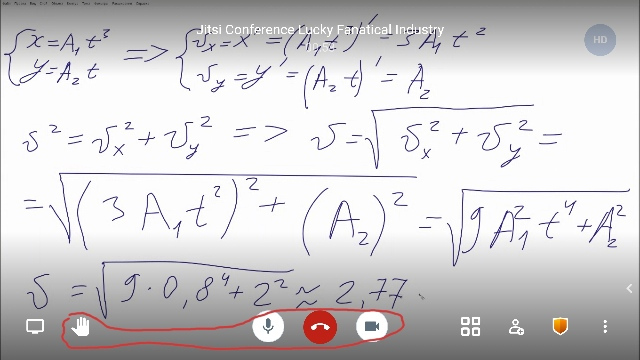 Jitsi Conference Lucky Fanatical Industry
HD
{ x = A₁ t³ => { υₓ = x′ = (A₁ t³)′ = 3 A₁ t²
{ y = A₂ t { υᵧ = y′ = (A₂ t)′ = A₂
υ² = υₓ² + υᵧ² => υ = √(υₓ² + υᵧ²) =
= √((3 A₁ t²)² + (A₂)²) = √(9 A₁² t⁴ + A₂²)
υ = √(9 · 0,8⁴ + 2²) ≈ 2,77